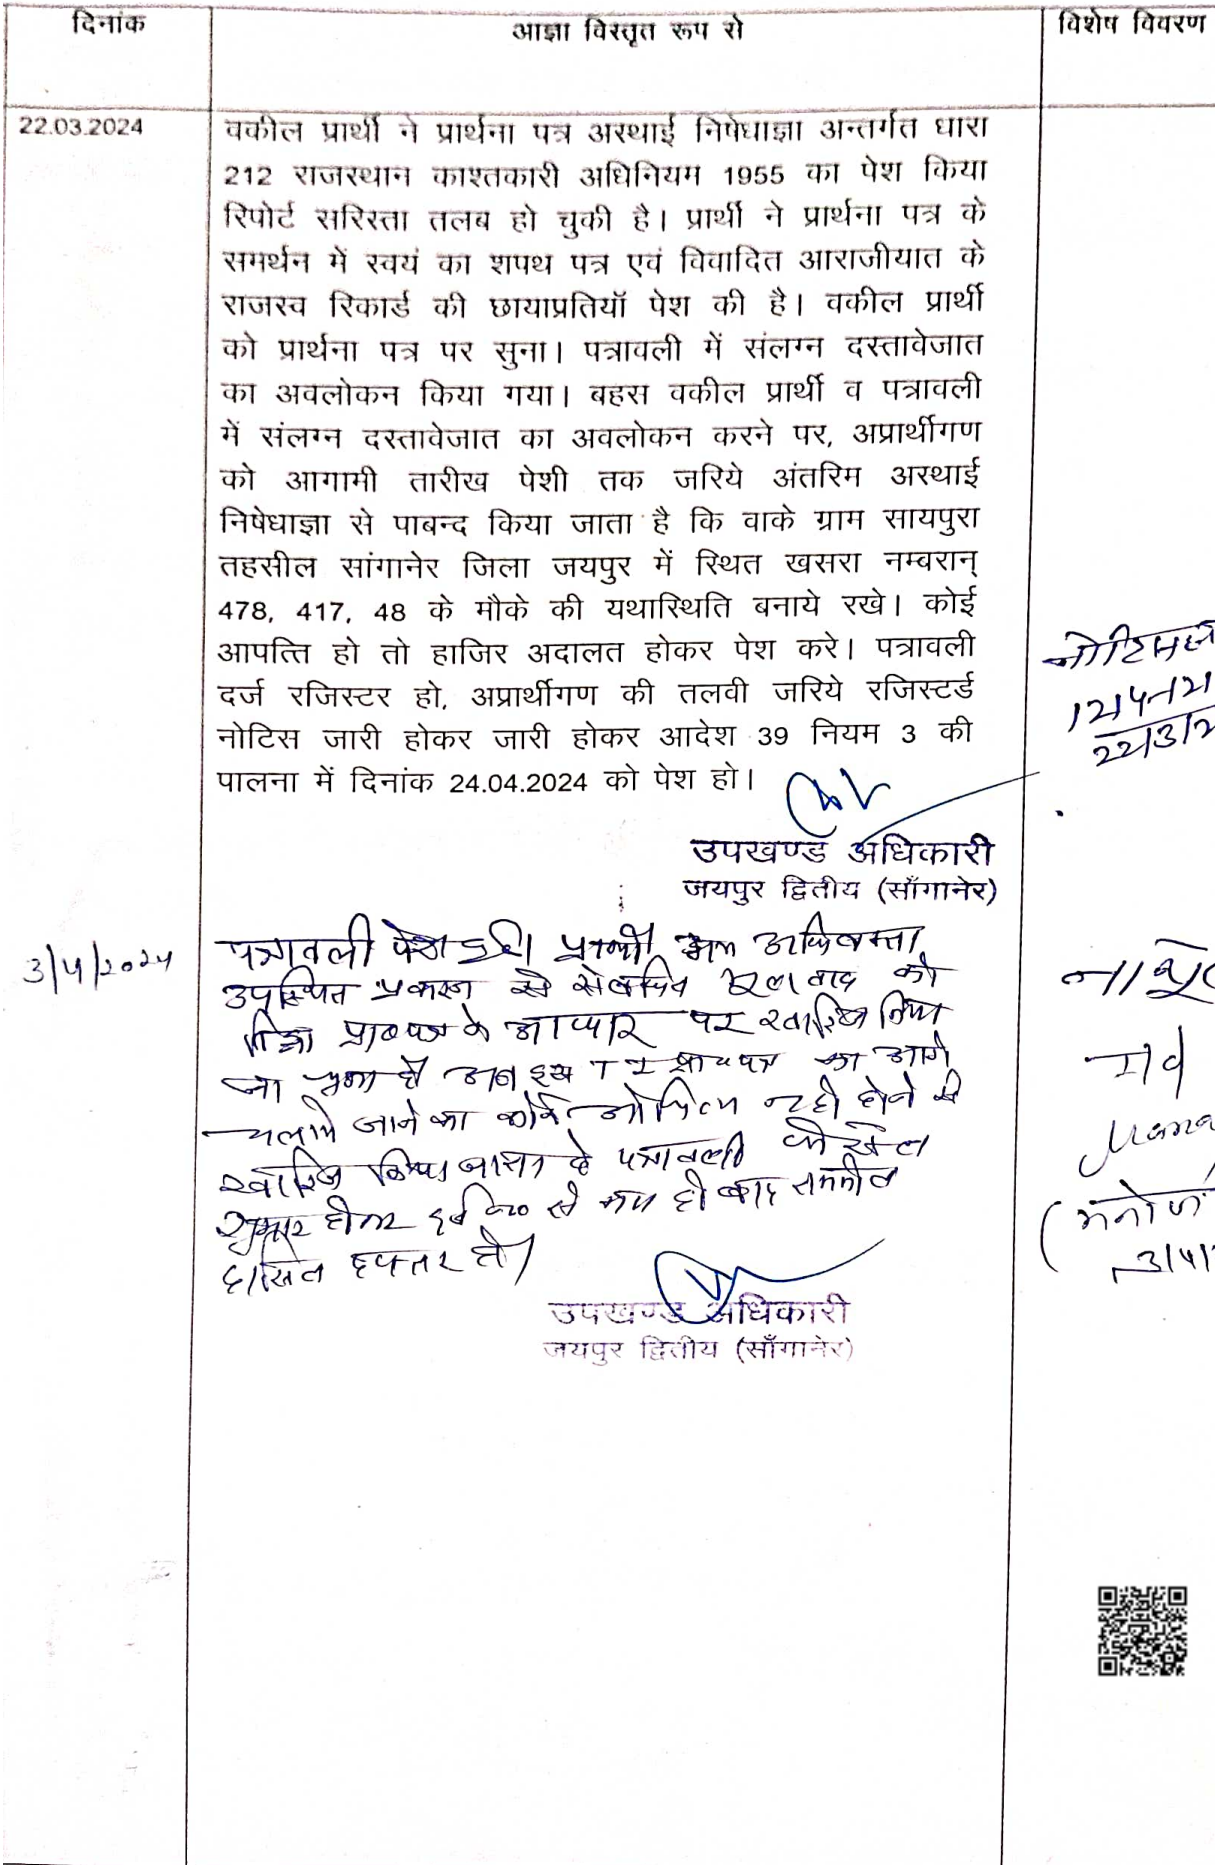 दिनांक
आज्ञा विस्तृत रूप से
विशेष विवरण
22.03.2024
वकील प्रार्थी ने प्रार्थना पत्र अस्थाई निषेधाज्ञा अन्तर्गत धारा
212 राजस्थान काश्तकारी अधिनियम 1955 का पेश किया
रिपोर्ट सरिस्ता तलब हो चुकी है। प्रार्थी ने प्रार्थना पत्र के
समर्थन में स्वयं का शपथ पत्र एवं विवादित आराजीयात के
राजस्व रिकार्ड की छायाप्रतियॉ पेश की है। वकील प्रार्थी
को प्रार्थना पत्र पर सुना। पत्रावली में संलग्न दस्तावेजात
का अवलोकन किया गया। बहस वकील प्रार्थी व पत्रावली
में संलग्न दस्तावेजात का अवलोकन करने पर, अप्रार्थीगण
को आगामी तारीख पेशी तक जरिये अंतरिम अस्थाई
निषेधाज्ञा से पाबन्द किया जाता है कि वाके ग्राम सायपुरा
तहसील सांगानेर जिला जयपुर में स्थित खसरा नम्बरान्
478, 417, 48 के मौके की यथास्थिति बनाये रखे। कोई
आपत्ति हो तो हाजिर अदालत होकर पेश करे। पत्रावली
दर्ज रजिस्टर हो, अप्रार्थीगण की तलवी जरिये रजिस्टर्ड
नोटिस जारी होकर जारी होकर आदेश 39 नियम 3 की
पालना में दिनांक 24.04.2024 को पेश हो।
22/3/2
उपखण्ड अधिकारी
जयपुर द्वितीय (साँगानेर)
3/4/2024
पत्रावली पेश हुई। प्रार्थी मय अधिवक्ता
उपस्थित प्रकरण से संबंधित मूल वाद को
प्रा०पत्र के आधार पर खारिज किया
जा चुका है अब इस T I प्रा०पत्र को आगे
चलाये जाने का कोई औचित्य नहीं होने से
खारिज किया जाता है पत्रावली फैसल
शुमार होकर से कम हो बाद तकमील
दाखिल दफ्तर हो।
उपखण्ड अधिकारी
जयपुर द्वितीय (साँगानेर)
(मनोज
3/4/